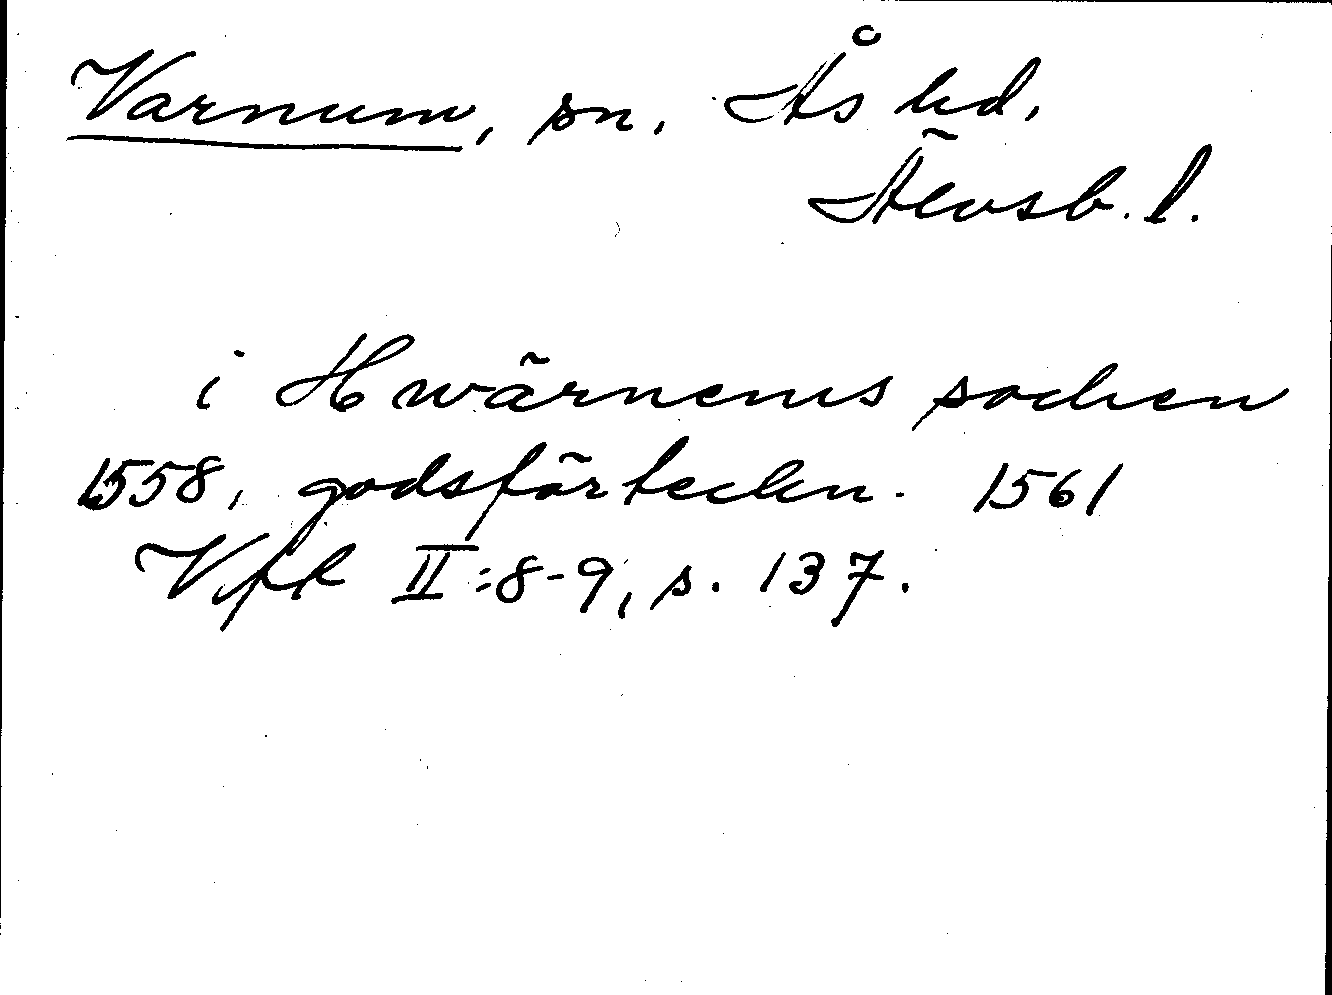 Varnum, sn, Ås hd,
Älvsb. l.
i Hwärnems sochen
1558, godsförteckn. 1561
Vfk II:8-9, s. 137.